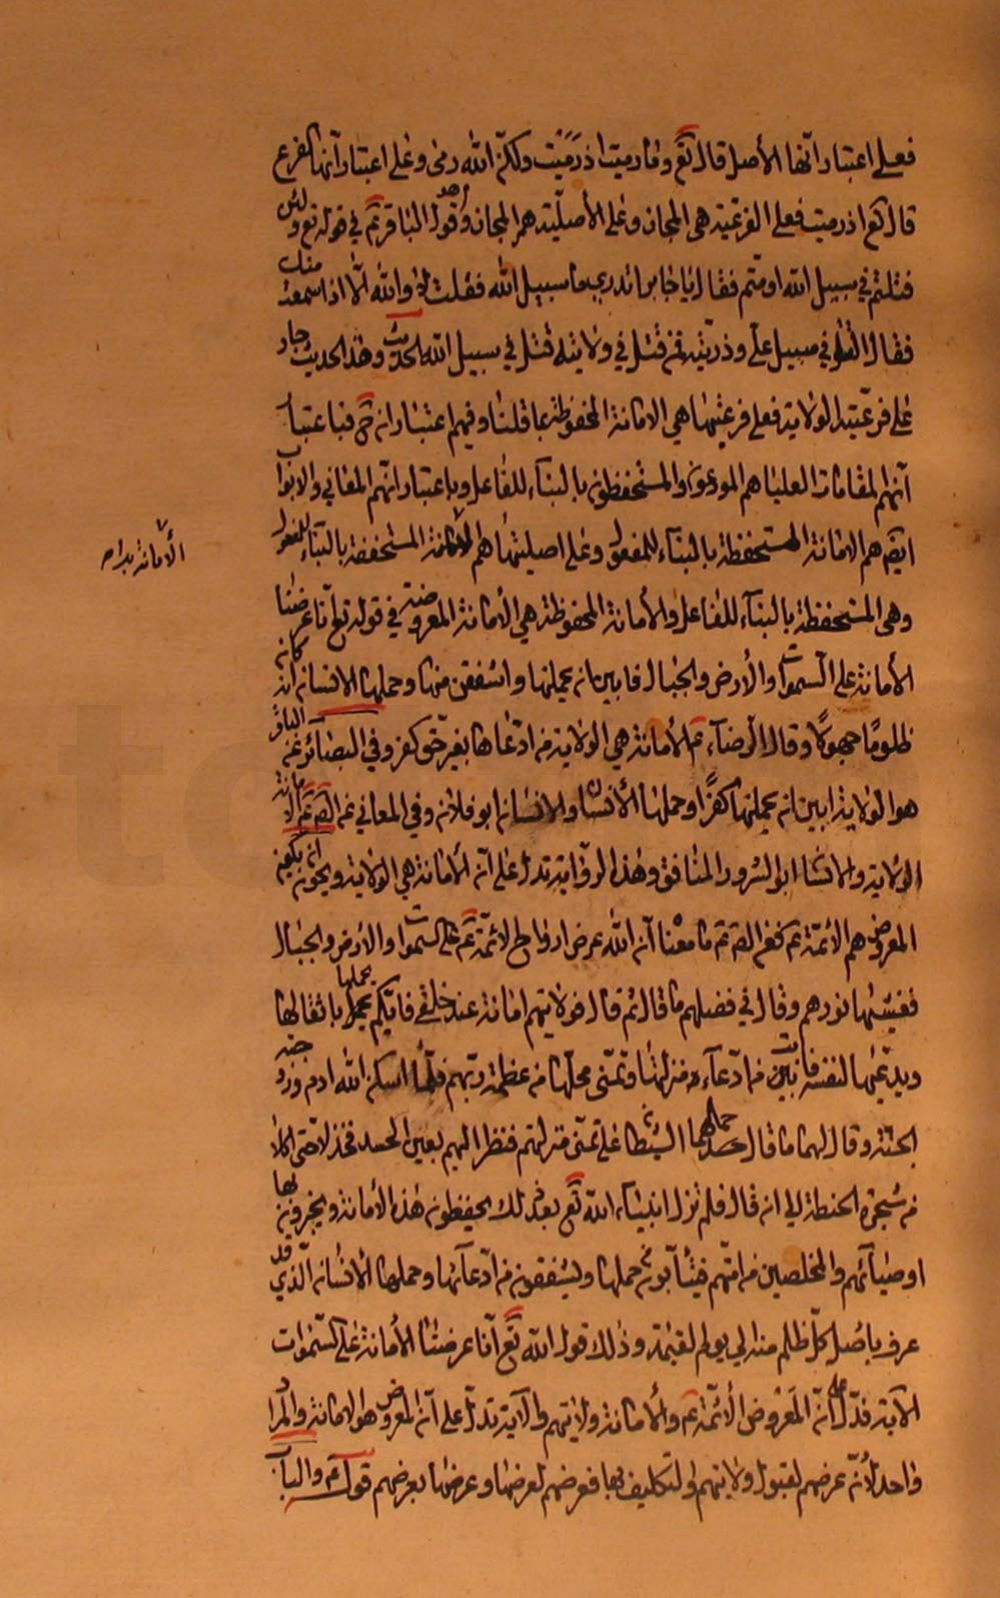 فعلى اعتبار انّها الأصل قال تع وما رميت اذ رميت ولكنّ الله رمى وعلى اعتبار أنها الفرع
قال تع اذ رميت فعلى الفرعية هى المجان وعلى الأصليّة هم المجان وقول الباقر عم في قوله تع ولئن
قتلتم في سبيل الله او متّم فقال يا جابر اتدري ما سبيل الله فقلت لا والله الّا اذا سمعت منك
فقال القتل في سبيل علىّ وذريّته فمن قتل في ولايته قتل في سبيل الله الحديث وهذا الحديث جار
على فرعيّة الولاية فعلى فرعيتها هي الامانة المحفوظة بما قلنا وفيهم اعتبار انه فباعتبار
أنهم المقامات العليا هم المودعون والمستحفظون بالبناء للفاعل وباعتبار انّهم المعاني والابواب
ايضا هم الامانة المستحفظة بالبناء للمفعول وعلى اصليتها هم الامانة المستحفظة بالبناء للمفعول
وهى المستحفظة بالبناء للفاعل والأمانة المحفوظة هي الأمانة المعروضة في قوله تع انّا عرضنا
الأمانة على السموات والأرض والجبال فابين ان يحملنها واشفقن منها وحملها الانسان انه كان
ظلومًا جهولًا وقال الرضا عم الأمانة هي الولاية من ادّعاها بغير حق كفر وفي البصائر عن الباقر
هو الولاية ابين ان يحملنها كفرًا وحملها الأنسان والانسان ابو فلان وفي المعاني عن الص عم الامانة
الولاية والانسان ابو الشرور المنافق وهذه الرواية تدل على أن الأمانة هي الولاية ويجوز ان يكون
المعروض هم الائمّة عم كفي عن الص عم ما معناه أن الله عرض ارواح الائمّة عم على السموات والأرض والجبال
فغشيها نورهم وقال في فضلهم ما قال ثم قال فولايتهم امانة عند خلقي فايّكم يحملها باثقالها
ويدّعيها لنفسه فابين من ادّعاء منزلتها وتمنّى محلّها من عظمة ربّهم فلمّا اسكن الله ادم وزوجته
الجنّة وقال لهما ما قال حملهما الشيطان على تمنّى منزلتهم فنظرا اليهم بعين الحسد فخذلا حتى اكلا
من شجرة الحنطة الى ان قال فلم تزل انبياء الله تع بعد ذلك يحفظون هذه الأمانة ويخبرون بها
اوصيآئهم والمخلصين من امّتهم فيأبون حملها ويشفقون من ادّعآئها وحملها الأنسان الّذي قد
عرف باصل كلّ ظلم منه الى يوم القيمة وذلك قول الله تع انّا عرضنا الأمانة على السّموات
الآية فدلّ على انّ المعروض الأئمّة عم والأمانة ولايتهم والآية تدلّ على أن المعروض هو الامانة والمراد
واحد لأنّه عرضهم لقبول ولايتهم والتكليف بها فعرضهم لعرضها وعرضها بعرضهم قوله والباب
الأمانة بدله